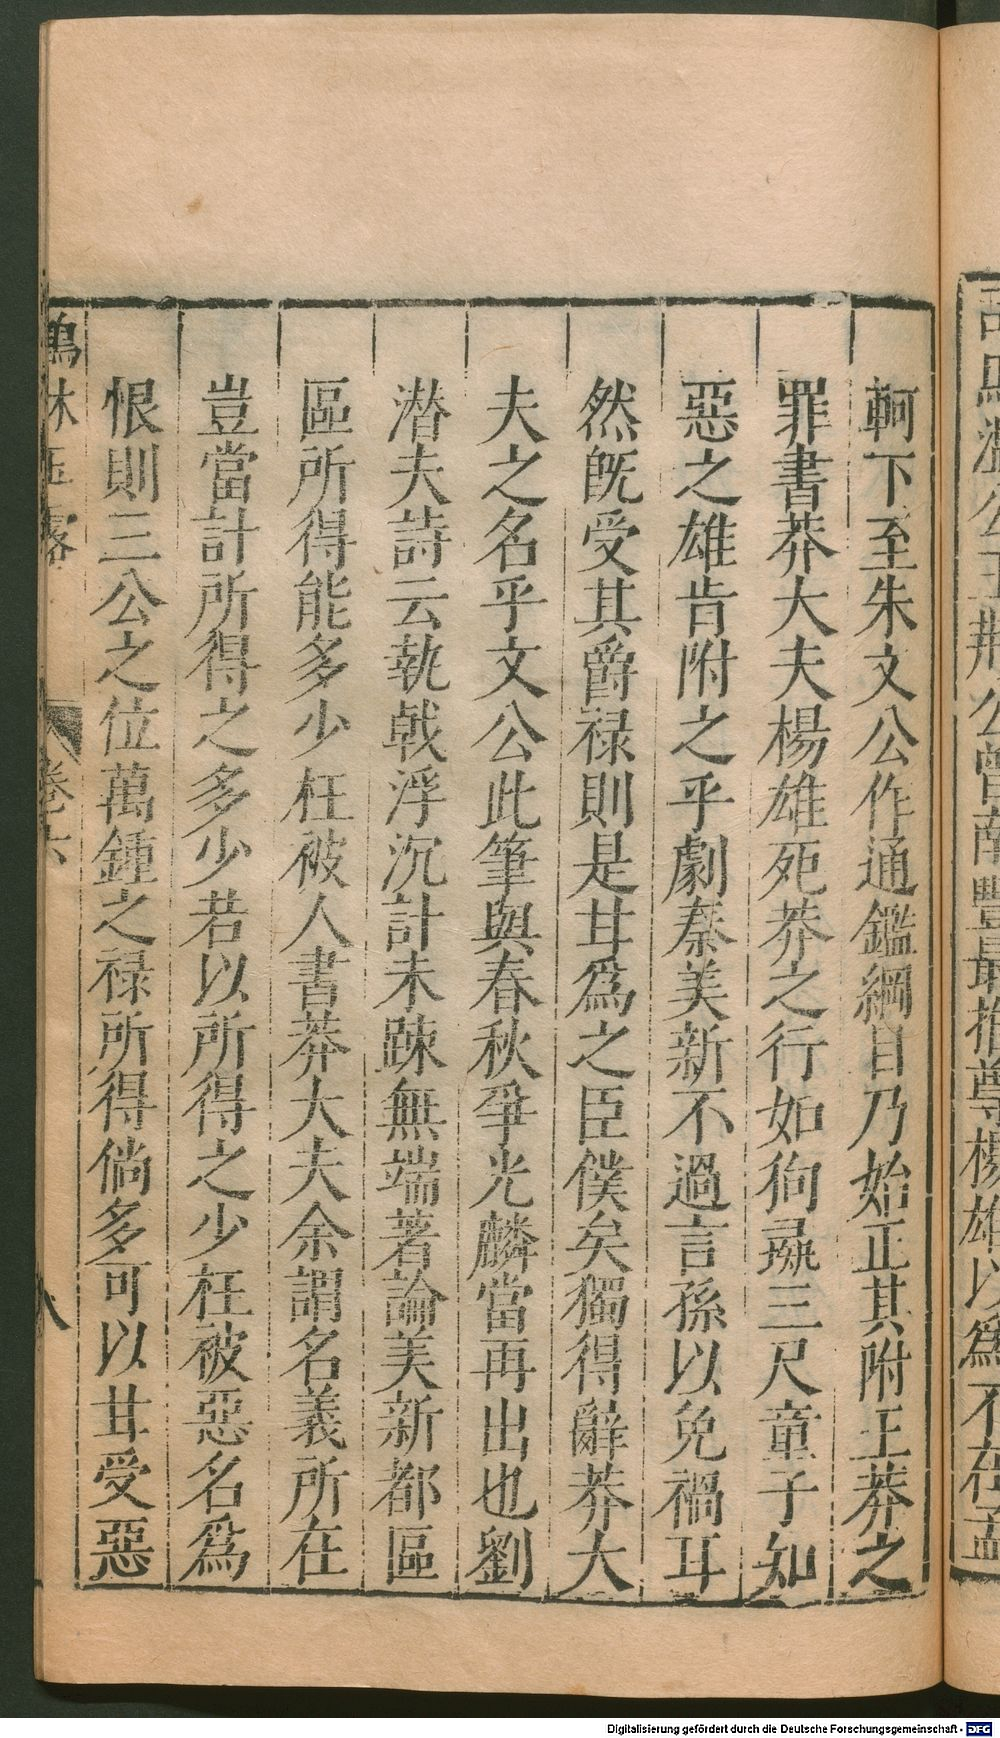 司馬溫公王荊公曾南豐最推尊楊雄以爲不在孟
軻下至朱文公作通鑑綱目乃始正其附王莽之
罪書莽大夫楊雄死莽之行如狗彘三尺童子知
惡之雄肯附之乎劇秦美新不過言孫以免禍耳
然旣受其爵禄則是甘爲之臣僕矣獨得辭莽大
夫之名乎文公此筆與春秋爭光麟當再出也劉
潜夫詩云執戟浮沉計未踈無端著論美新都區
區所得能多少枉被人書莽大夫余謂名義所在
豈當計所得之多少若以所得之少枉被惡名爲
恨則三公之位萬鍾之禄所得倘多可以甘受惡
鶴林玉露 卷六 八
Digitalisierung gefördert durch die Deutsche Forschungsgemeinschaft - DFG